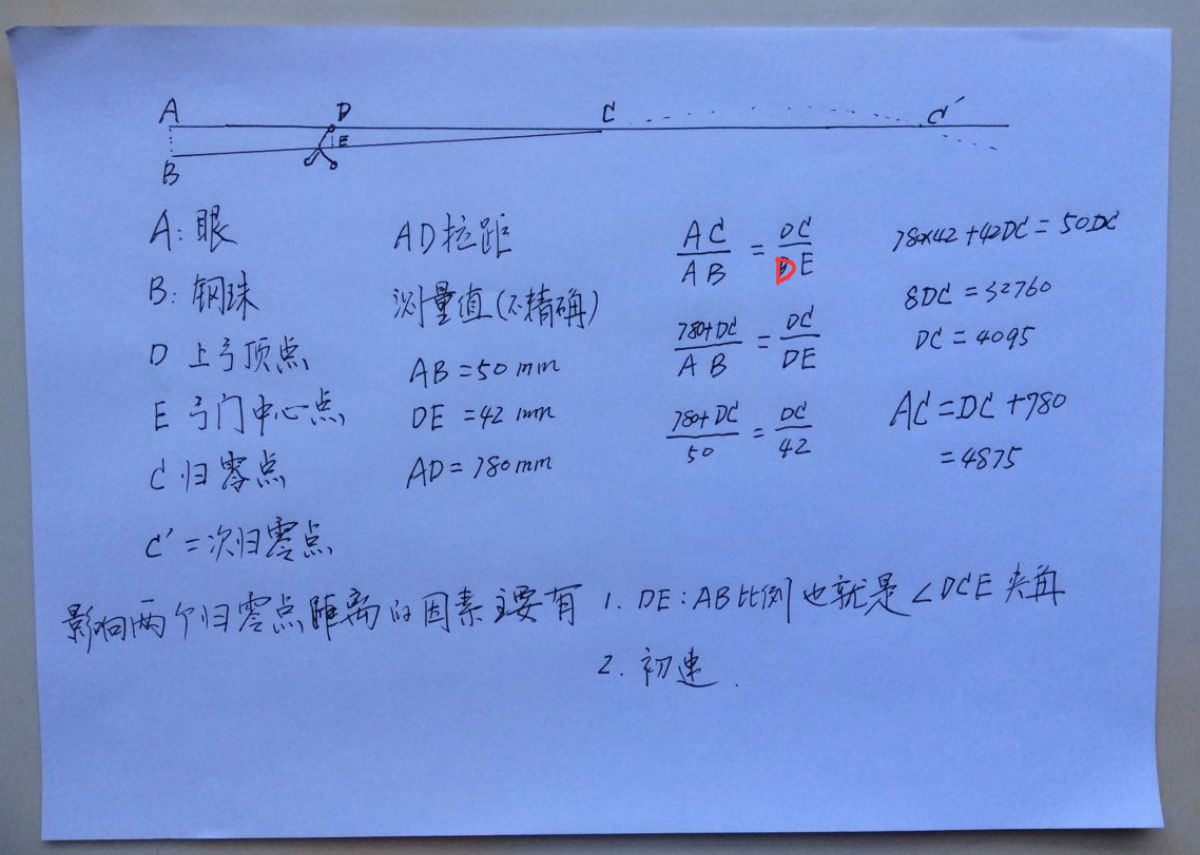 A D C C′
E
B
A: 眼
B: 钢珠
D 上弓顶点
E 弓门中心点
C 归零点
C′=次归零点
AD拉距
测量值(不精确)
AB=50mm
DE=42mm
AD=780mm
AC/AB = DC/DE
780+DC/AB = DC/DE
780+DC/50 = DC/42
780×42+42DC=50DC
8DC=32760
DC=4095
AC=DC+780
=4875
影响两个归零点距离的因素主要有 1. DE:AB比例也就是∠DCE夹角
2. 初速.